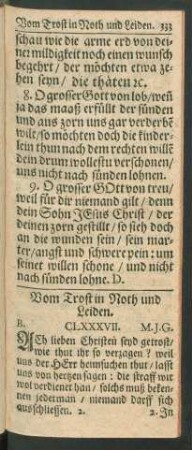 Vom Trost in Noth und Leiden. 333
schau wie die arme erd von dei-
ner mildigkeit noch einen wunsch
begehrt / der möchten etwa ze-
hen seyn / die thäten ꝛc.
8. O grosser Gott von lob / weñ
ja das maaß erfüllt der sünden
und aus zorn uns gar verderbē
wilt / so möchten doch die kinder-
lein thun nach dem rechten willē
dein drum wollestu verschonen /
uns nicht nach sünden lohnen.
9. O grosser GOtt von treu /
weil für dir niemand gilt / denn
dein Sohn JEsus Christ / der
deinen zorn gestillt / so sieh doch
an die wunden sein / sein mar-
ter / angst und schwere pein: um
seinet willen schone / und nicht
nach sünden lohne. D.
Vom Trost in Noth und
Leiden.
B. CLXXXVII. M.J.G.
ACh lieben Christen seyd getrost /
wie thut ihr so verzagen? weil
uns der HErr heimsuchen thut / lasst
uns von hertzen sagen: die straff wir
wol verdienet han / solchs muß beken-
nen jederman / niemand darff sich
ausschliessen. 2. 2. In